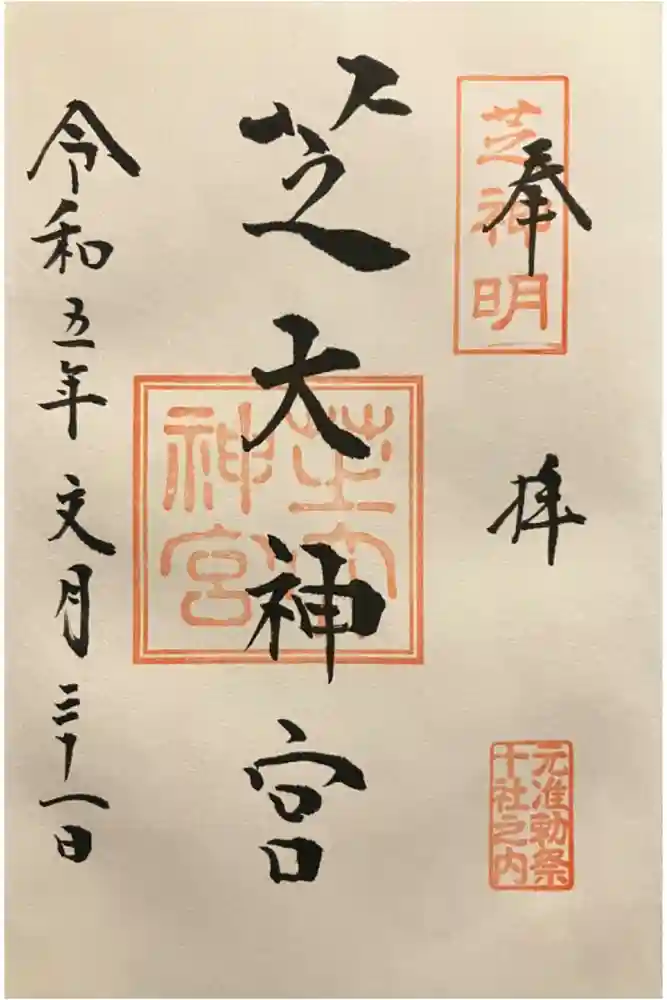 奉拝
芝神明
元准勅祭
十社之内
芝大神宮
芝大
神宮
令和五年文月三十一日